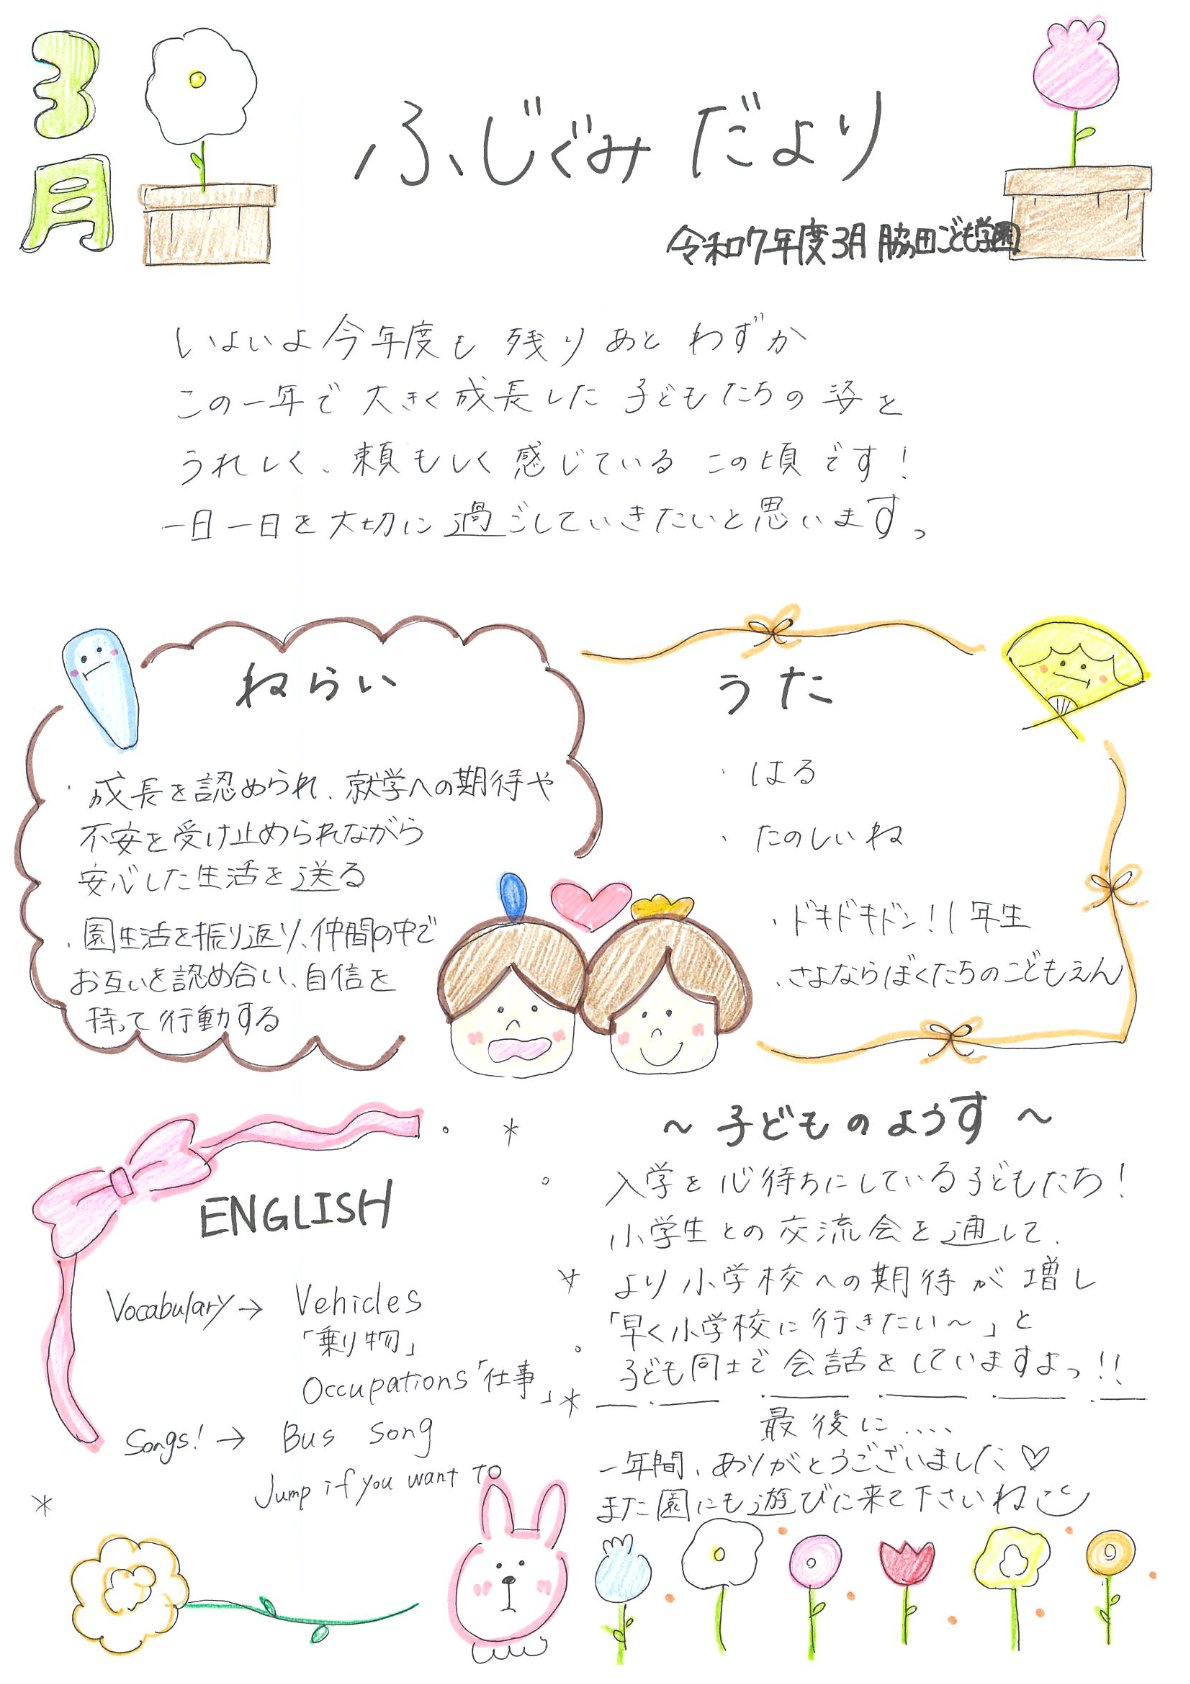 3月
ふじぐみ だより
令和7年度3月 脇田こども学園
いよいよ今年度も 残り あと わずか
この一年で 大きく成長した 子どもたちの 姿を
うれしく、頼もしく 感じている この頃です!
一日一日を大切に過ごしていきたいと思います。
ねらい
・成長を認められ、就学への期待や
不安を受け止められながら
安心した生活を送る
・園生活を振り返り、仲間の中で
お互いを認め合い、自信を
持って行動する
うた
・はる
・たのしいね
・ドキドキドン!1年生
・さよならぼくたちのこどもえん
ENGLISH
Vocabulary→ Vehicles
「乗り物」
Occupations「仕事」
Songs!→ Bus Song
Jump if you want to
~子どものようす~
入学を心待ちにしている子どもたち!
小学生との交流会を通して、
より小学校への期待が増し
「早く小学校に行きたい~」と
子ども同士で会話をしていますよっ!!
最後に....
一年間、ありがとうございました♡
また園にも遊びに来て下さいね